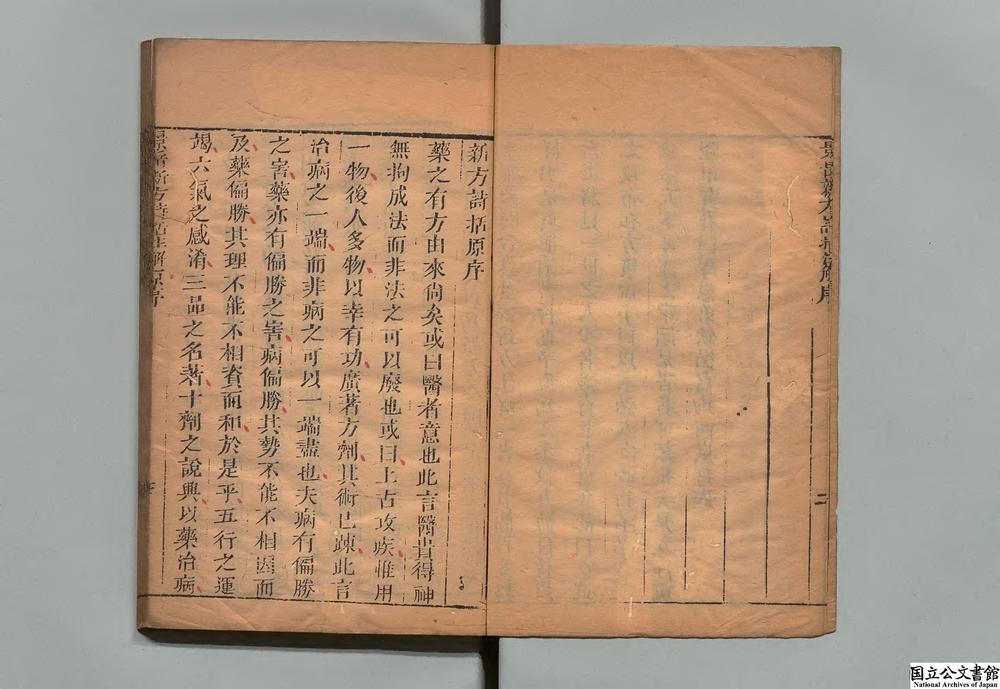 二
新方詩括原序
藥之有方由來尚矣或曰醫者意也此言醫貴得神
無拘成法而非法之可以廢也或曰上古攻疾惟用
一物後人多物以幸有功廣著方劑其術已踈此言
治病之一端而非病之可以一端盡也夫病有偏勝
之害藥亦有偏勝之害病偏勝其勢不能不相因而
及藥偏勝其理不能不相資而和於是乎五行之運
竭六氣之感淆三品之名著十劑之說興以藥治病
国立公文書館
National Archives of Japan